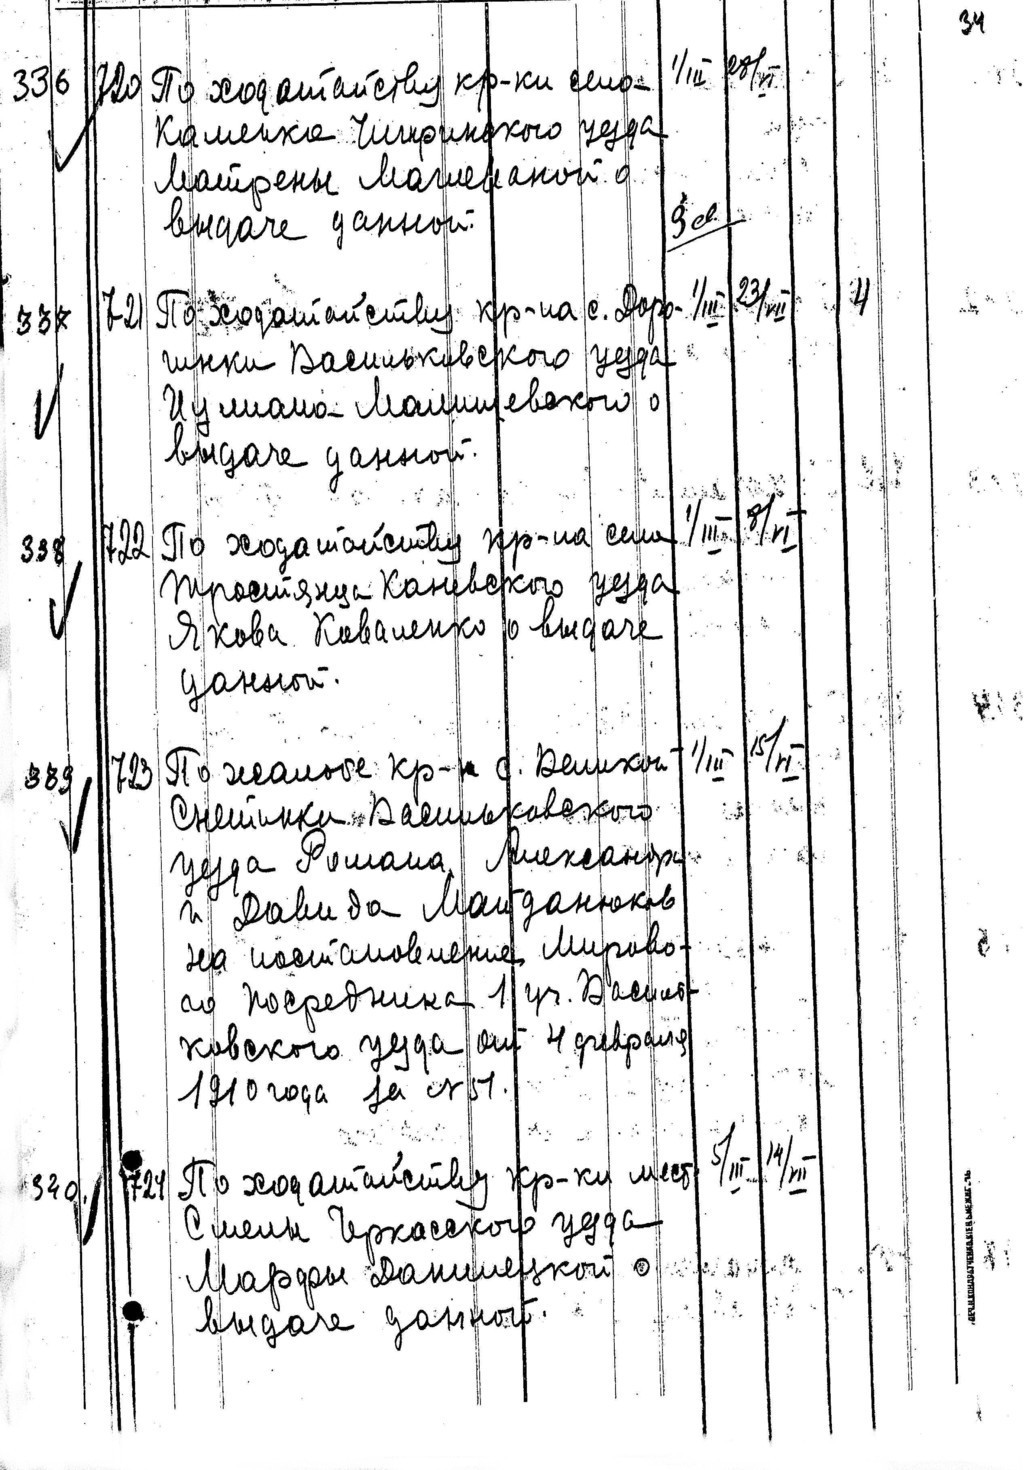 34
336 720 По ходатайству кр-ки села 1/III 28/VI
Каменка Чигиринского уезда
Матрены о
выдаче данной.
9 л
337 721 По ходатайству кр-на с. Доро- 1/III 23/VII 4
гинки Васильковского уезда
Иулиана Малишевского о
выдаче данной.
338 722 По ходатайству кр-на села 1/III 8/VI
Тростянца Каневского уезда
Якова Коваленко о выдаче
данной.
339 723 По жалобе кр-н с. Великой 1/III 15/VI
Снетинки Васильковского
уезда Романа, Александра
и Давида Майданюков
на постановление Мирово-
го Посредника 1 уч. Василь-
ковского уезда от 4 февраля
1910 года за № 51.
340. 724 По ходатайству кр-ки мест. 5/III 14/VII
Смелы Черкасского уезда
Марфы Данилецкой о
выдаче данной.